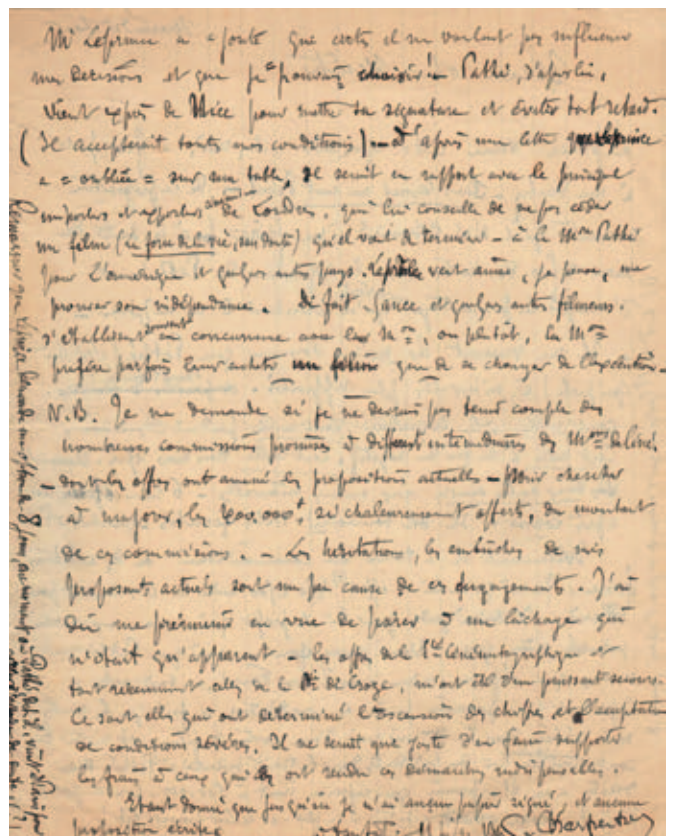 Mr Leprince a ajouté que certes il ne voulait pas influencer
mes décisions et que je pouvais choisir! Pathé, d'après lui,
vient exprès de Nice pour mettre sa signature et éviter tout retard.
(Il accepterait toutes mes conditions) — d'après une lettre que Leprince
a = oubliée = sur ma table, il serait en rapport avec le principal
importer et exporter de Londres, qui lui conseille de ne pas céder
un film (la force de la vie, sans doute) qu'il vient de terminer — à la Mon Pathé
pour l'Amérique et quelques autres pays. Leprince veut ainsi, je pense, me
prouver son indépendance. De fait Gance et quelques autres filmeurs
s'établissent souvent en concurrence avec leur Mon, ou plutôt, la Mon
préfère parfois leur acheter un film que de se charger de l'exécution. —
N.B. Je me demande si je ne devrais pas tenir compte des
nombreuses commissions promises à différents intermédiaires des Mons de Ciné.
— dont les offres ont amené les propositions actuelles — pour chercher
à majorer, les 400.000f, si chaleureusement offerts, du montant
de ces commissions. — Les hésitations, les embûches de mes
proposants actuels sont un peu cause de ces engagements. J'ai
dû me prémunir en vue de parer à un lâchage qui
n'était qu'apparent — les offres de la Sté Cinématographique et
tout récemment celles de la de Croze, m'ont été d'un puissant secours.
Ce sont elles qui ont déterminé l'ascension des chiffres, et l'acceptation
de conditions sévères. Il ne serait que juste d'en faire supporter
les frais à ceux qui les ont rendu ces démarches indispensables.
Etant donné que jusqu'ici je n'ai aucun papier signé, et aucune
proposition écrite
Charpentier
Remarquer que Leprince demande 8 jours, au moment où Pathé